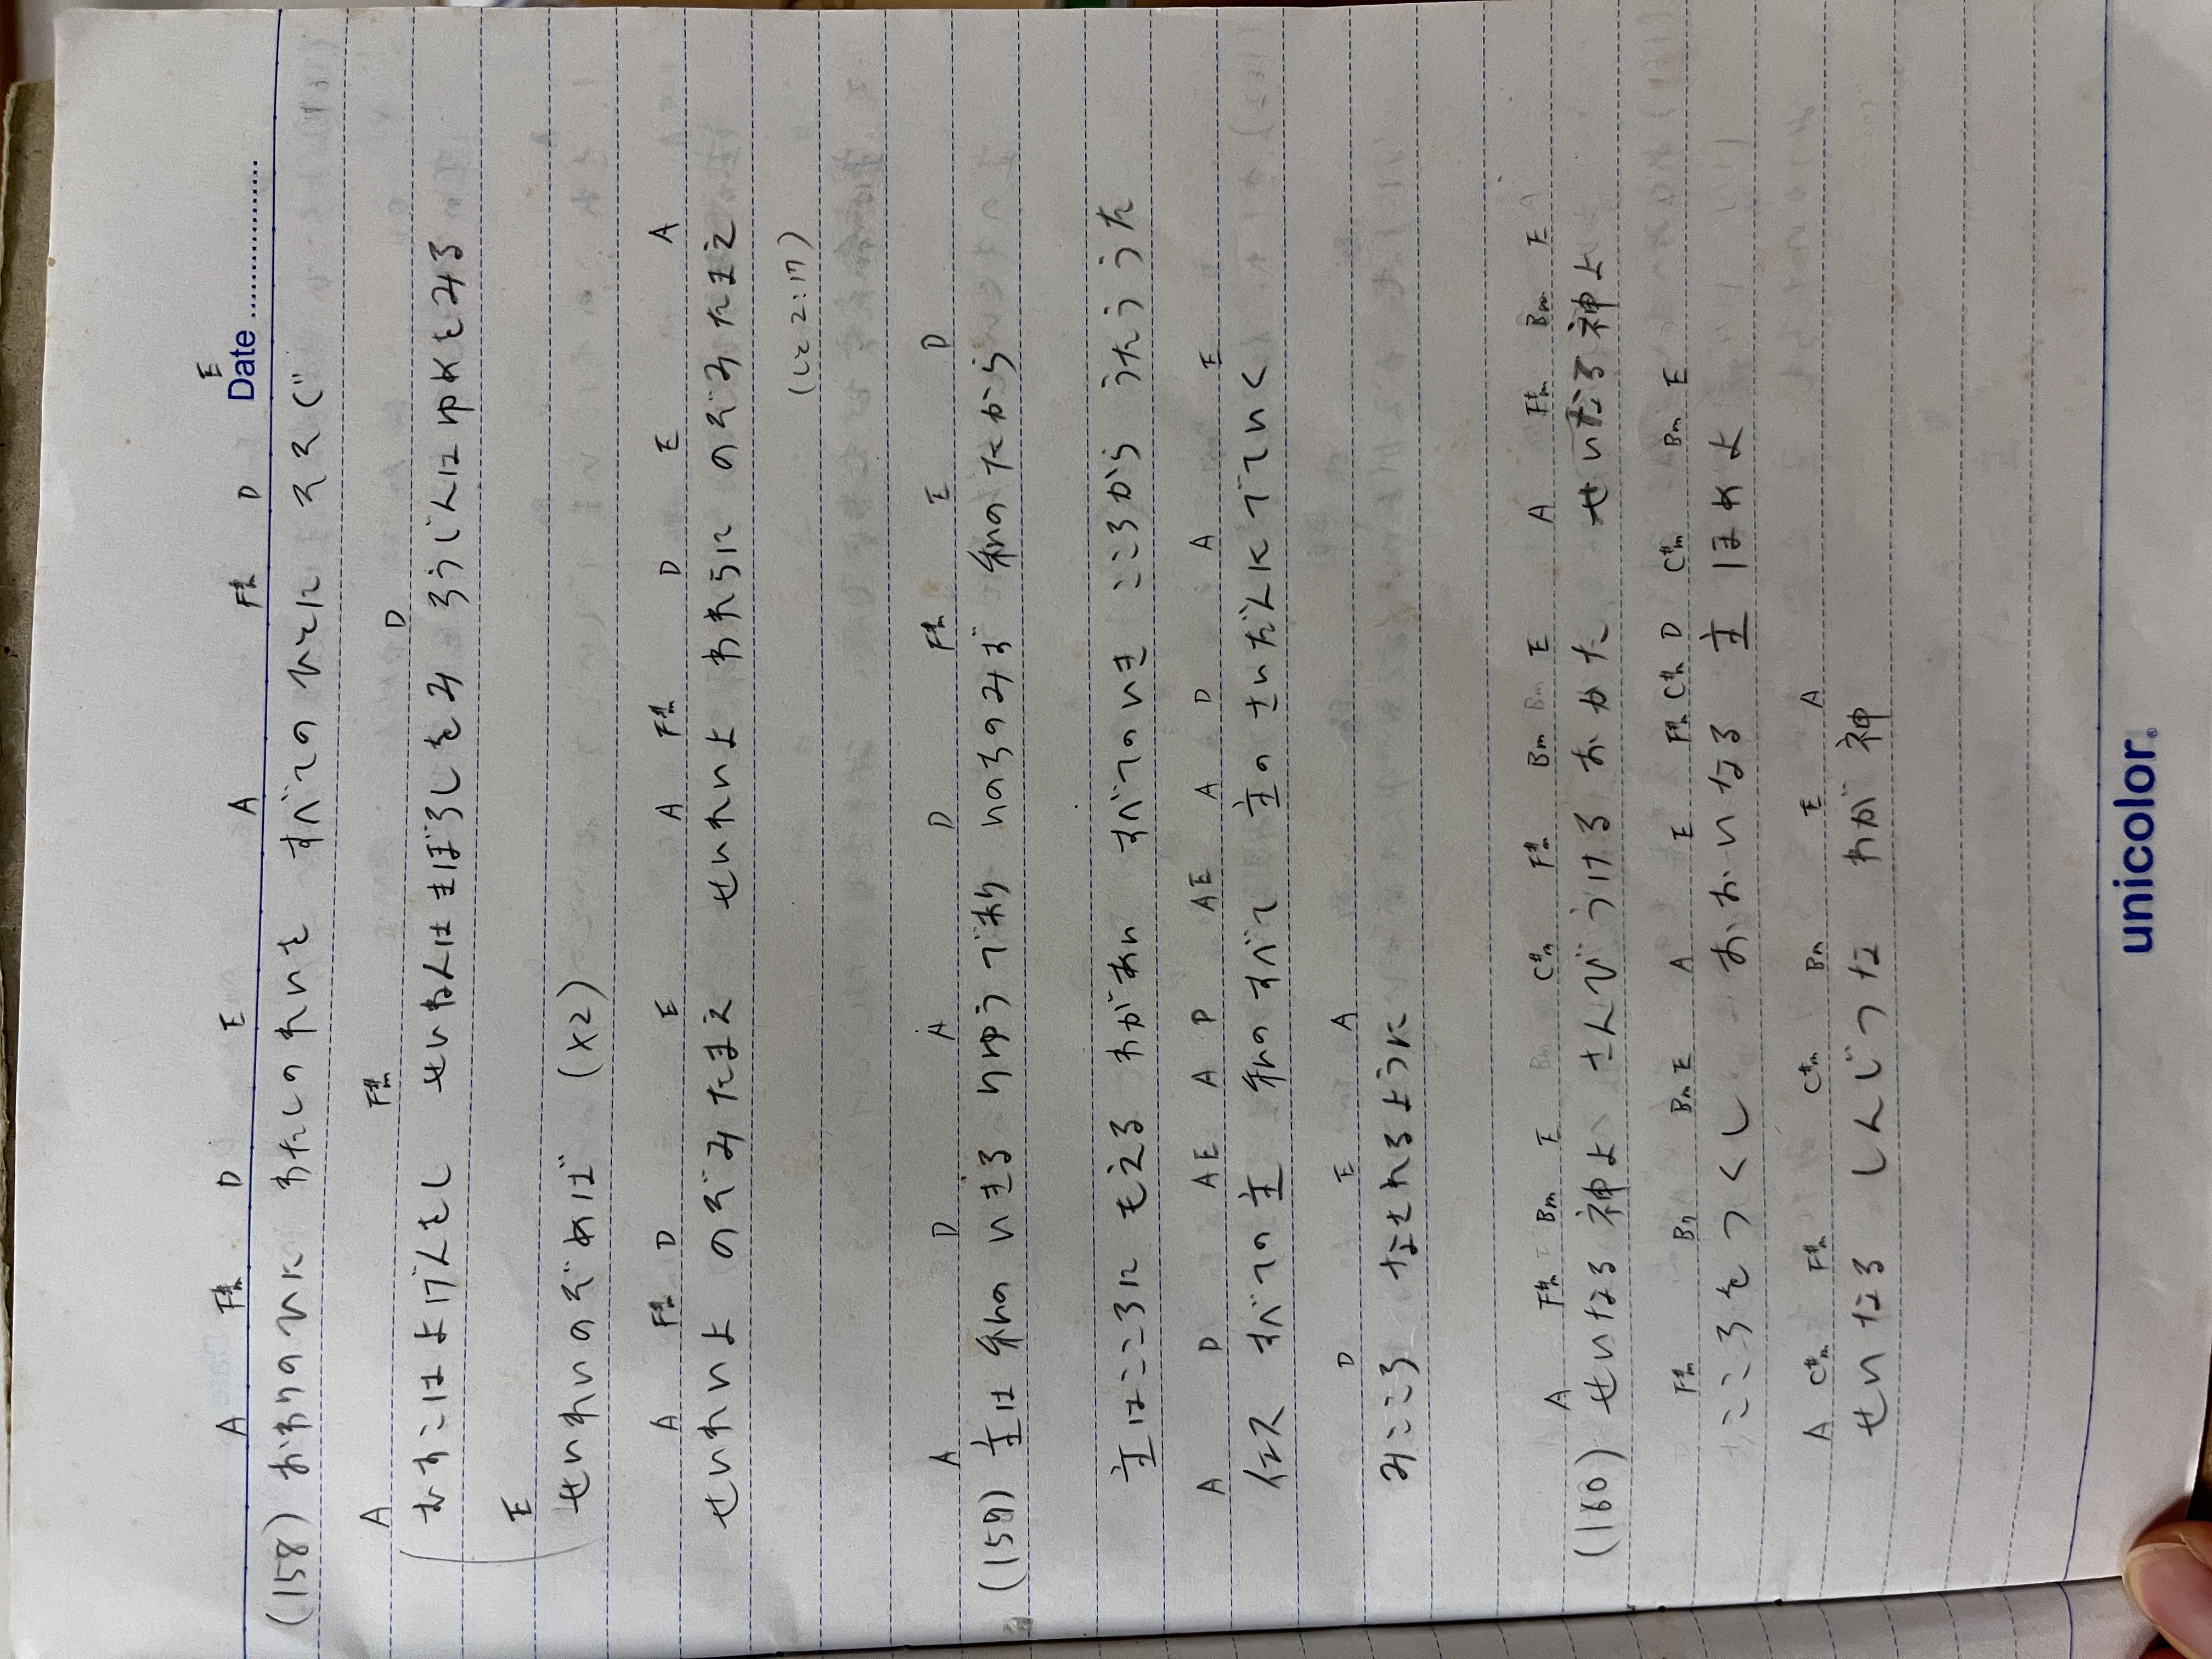 E
Date
A F#m D E A F#m D
(158) おわりのひに わたしのれいを すべてのひとに そそぐ
A F#m D
むすこはよげんをし せいねんはまぼろしをみ ろうじんはゆめをみる
E
せいれいのぞめば (×2)
A F#m D E A F#m D E A
せいれいよ のぞみたまえ せいれいよ われらに のぞみたまえ
(しと2:17)
A D A D F#m E D
(159) 主は 私の いきる りゆうであり いのちのみず 私のたから
主はこころに もえる わがあい すべてのいき こころから うたう うた
A D AE A D AE A D A E
イエス すべての主 私のすべて 主の さいだんに でていく
D E A
みこころ なされるように
A F#m Bm E Bm C#m F#m Bm Bm E A F#m Bm E
(160) せいなる 神よ さんびうける おかた せいなる神よ
F#m Bm Bm E A E F#m C#m D C#m Bm E
こころを つくし おおいなる 主 ほめよ
A C#m F#m C#m Bm E A
せいなる しんじつな わが 神
unicolor®